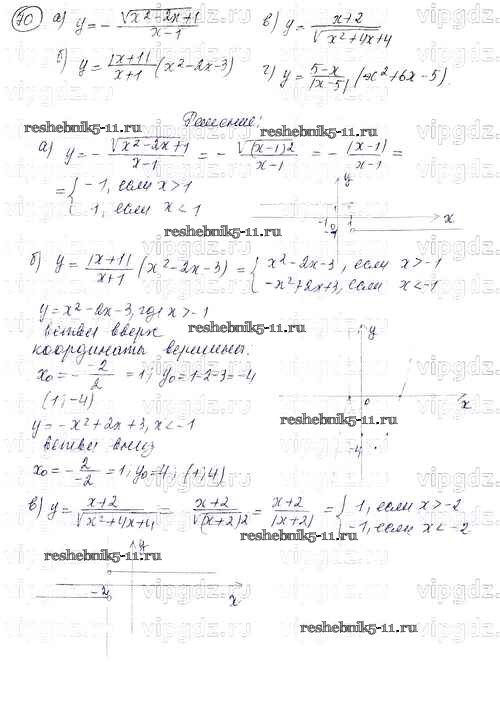 70 а) y = - √(x²-2x+1)/(x-1) в) y = (x+2)/√(x²+4x+4)
б) y = |x+1|/(x+1) (x²-2x-3) г) y = (5-x)/|x-5| (-x²+6x-5).
Решение:
reshebnik5-11.ru reshebnik5-11.ru
а) y = - √(x²-2x+1)/(x-1) = - √((x-1)2)/(x-1) = - |x-1|/(x-1) =
= { -1, если x > 1
1, если x < 1
y
-1 1 x
reshebnik5-11.ru
б) y = |x+1|/(x+1) (x²-2x-3) = { x²-2x-3, если x > -1
-x²+2x+3, если x < -1
y = x²-2x-3, где x > -1
reshebnik5-11.ru
ветви вверх
координаты вершины.
x₀ = - -2/2 = 1; y₀ = 1-2-3 = -4
(1; -4)
y
0 x
-4
y = -x²+2x+3, x < -1
reshebnik5-11.ru
ветви вниз
x₀ = - 2/-2 = 1, y₀ = 4; (1; 4)
в) y = (x+2)/√(x²+4x+4) = (x+2)/√((x+2)2) = (x+2)/|x+2| = { 1, если x > -2
-1, если x < -2
reshebnik5-11.ru reshebnik5-11.ru
y
-2 x
reshebnik5-11.ru
vipgdz.ru